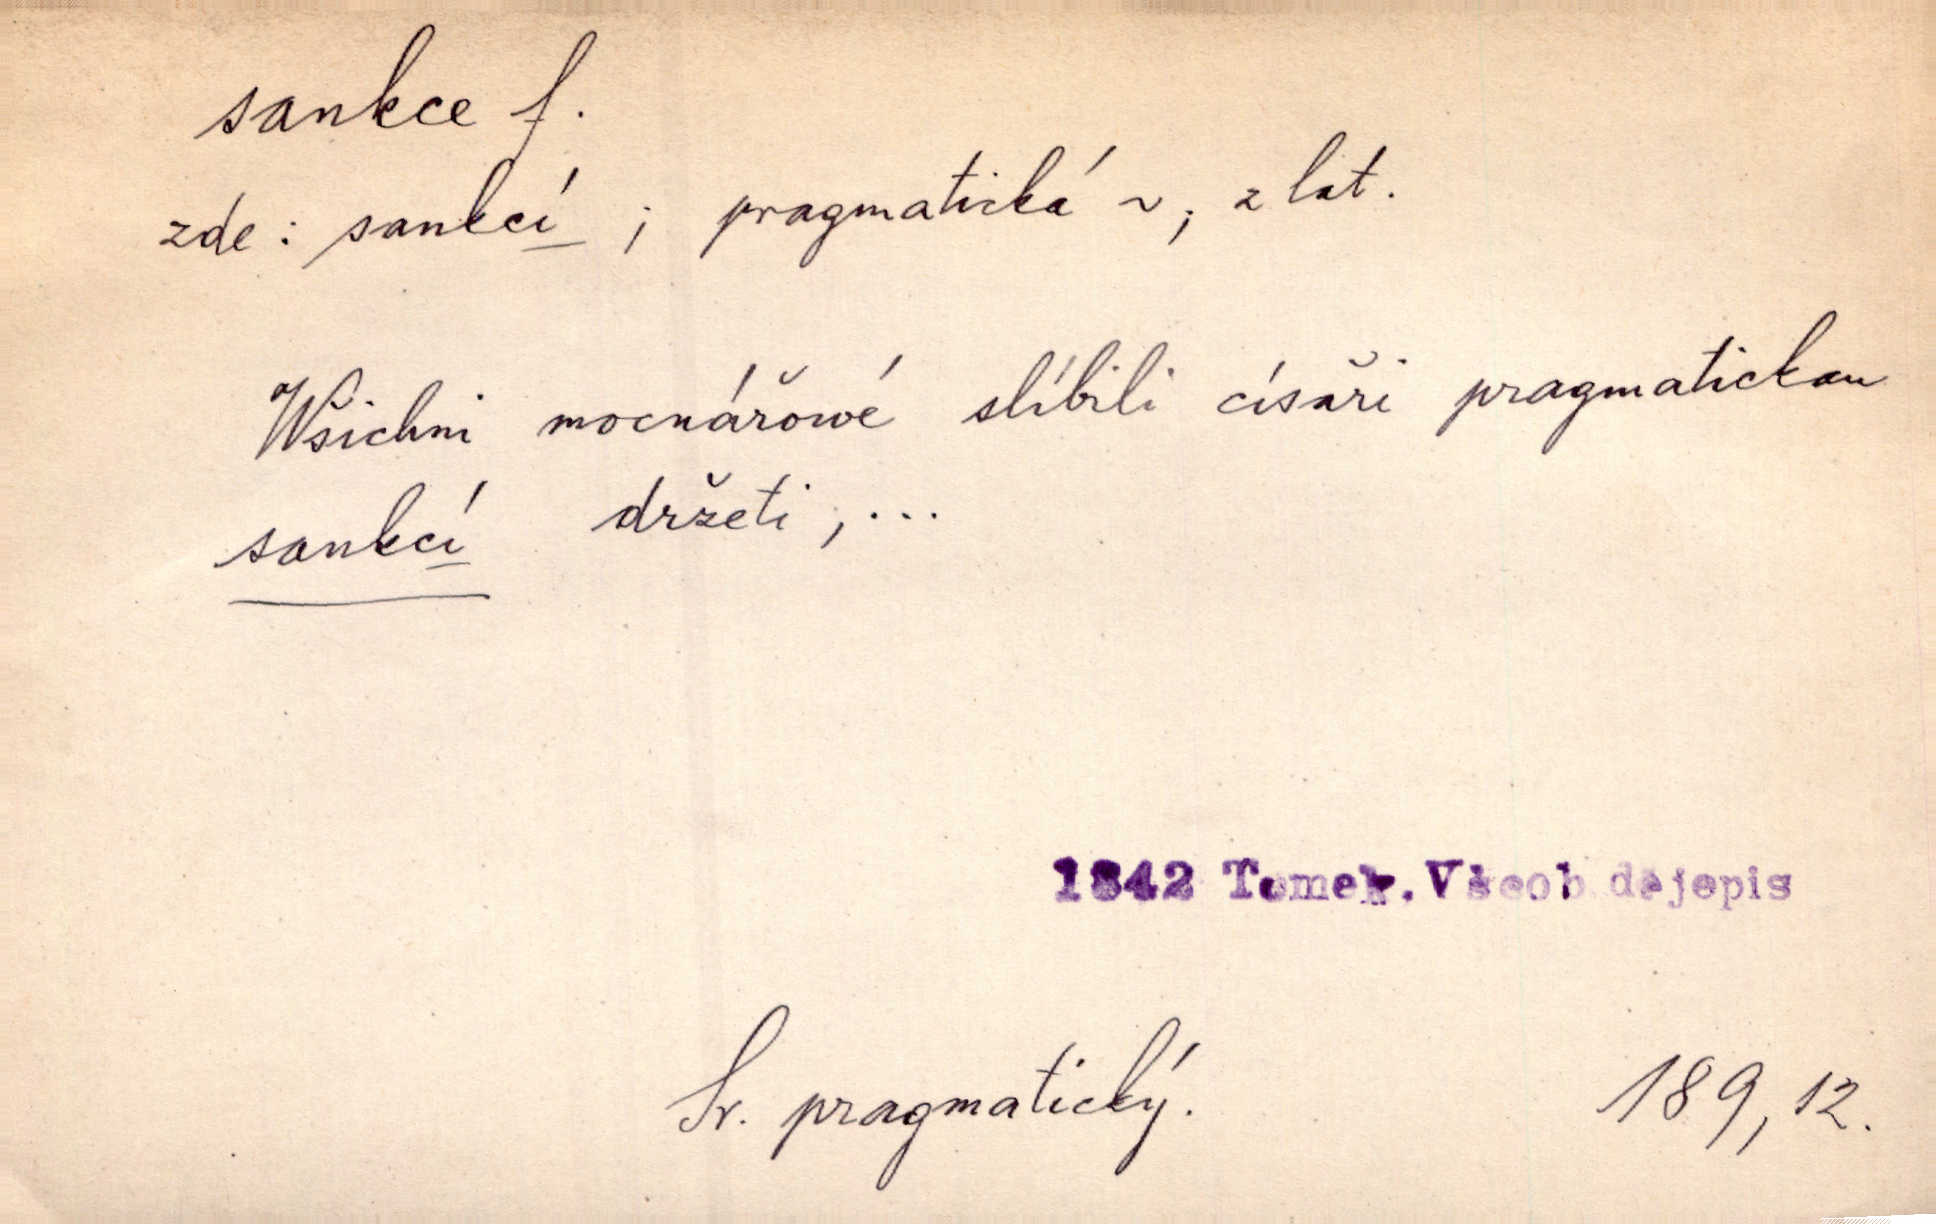 sankce f.
zde: sankcí ; pragmatická ~; z lat.
Wšichni mocnářowé slíbili císaři pragmatickau
sankcí držeti, ...
1842 Tomek. Všeob dějepis
Sr. pragmatický.
189, 12.